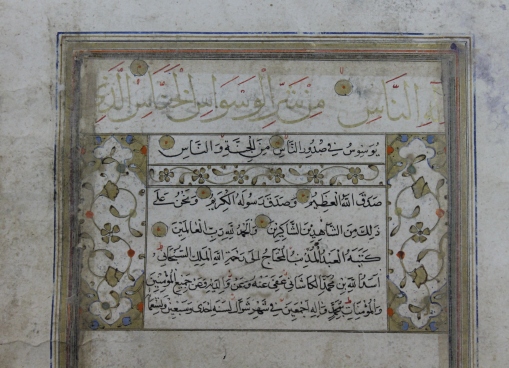 إله الناس من شر الوسواس الخناس الذي
يوسوس في صدور الناس من الجنة والناس
صدق الله العظيم وصدق رسوله الكريم ونحن على
ذلك من الشاهدين الشاكرين والحمد لله رب العالمين
كتبه العبد المذنب المحتاج الى رحمة الله الملك السبحاني
اسد الله بن محمد الكاشاني عفى عنه وعن والديه وعن جميع المؤمنين
والمؤمنات بمحمد واله اجمعين في شهر شوال لسنه احدى وسبعين